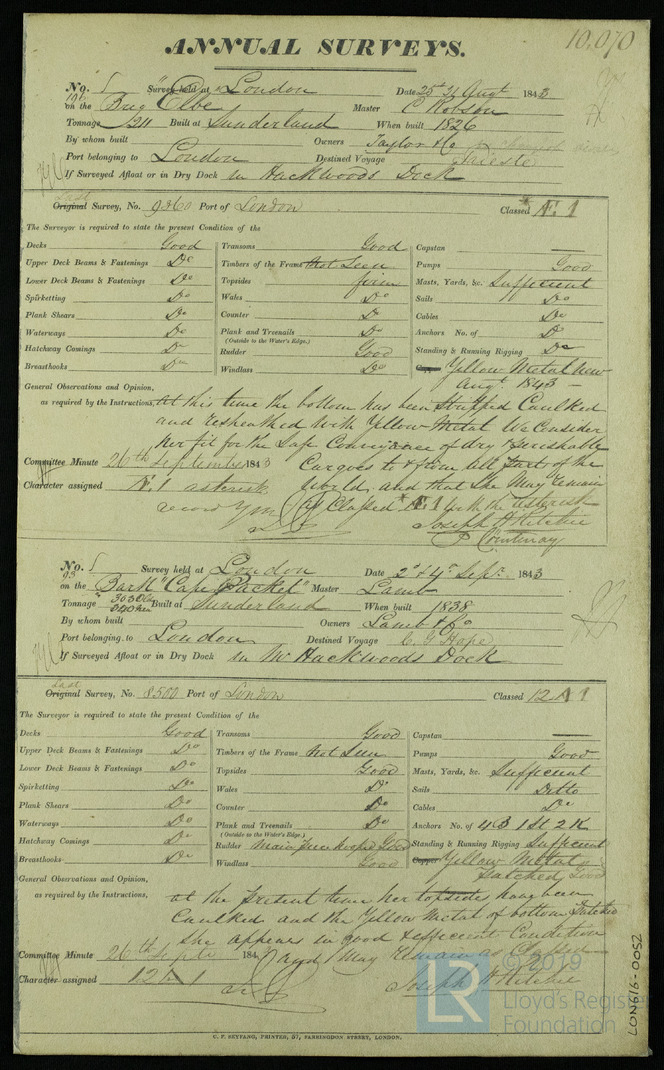 10,070
ANNUAL SURVEYS.
No. Survey held at London Date 25th 31 Augt 1843
on the Brig "Elbe Master C Robson
Tonnage 211 Built at Sunderland When built 1826
By whom built Owners Taylor & Co
Port belonging to London Destined Voyage Trieste
If Surveyed Afloat or in Dry Dock in Hackwoods Dock
Last
Original Survey, No. 9360 Port of London Classed Æ 1
The Surveyor is required to state the present Condition of the
Decks Good Transoms Good Capstan
Upper Deck Beams & Fastenings Do Timbers of the Frame Not Seen Pumps Good
Lower Deck Beams & Fastenings Do Topsides firm Masts, Yards, &c. Sufficient
Spirketting Do Wales Do Sails Do
Plank Shears Do Counter Do Cables Do
Waterways Do Plank and Treenails Do Anchors No. of Do
(Outside to the Water's Edge.)
Hatchway Comings Do Rudder Good Standing & Running Rigging Do
Breasthooks Do Windlass Do Yellow Metal New
Augt. 1843
General Observations and Opinion,
as required by the Instructions, At this time the bottom has been Stripped Caulked
and Resheathed with Yellow Metal We Consider
her fit for the Safe Conveyance of dry & perishable
Committee Minute 26th September 1843 Cargoes to & from all parts of the
Character assigned Æ 1 asterisk World and that She May remain
as Classed Æ 1 with the asterisk
Joseph H Ritchie
P Courtenay
No. Survey held at London Date 2d & 4th Sept. 1843
on the Bark "Cape Packet" Master Lamb
Tonnage 303 Old 240 New Built at Sunderland When built 1838
By whom built Owners Lamb & Co
Port belonging to London Destined Voyage C. G Hope
If Surveyed Afloat or in Dry Dock in Mr Hackwoods Dock
Last
Original Survey, No. 8500 Port of London Classed 12 A 1
The Surveyor is required to state the present Condition of the
Decks Good Transoms Good Capstan
Upper Deck Beams & Fastenings Do Timbers of the Frame Not Seen Pumps Good
Lower Deck Beams & Fastenings Do Topsides Good Masts, Yards, &c. Sufficient
Spirketting Do Wales Do Sails Ditto
Plank Shears Do Counter Do Cables Do
Waterways Do Plank and Treenails Do Anchors No. of 4 B 1 St 2 K
(Outside to the Water's Edge.)
Hatchway Comings Do Rudder Good Standing & Running Rigging Sufficient
Breasthooks Do Windlass Good Copper Yellow Metal
Patched Good
General Observations and Opinion,
as required by the Instructions, at the present time her topsides have been
Caulked and the Yellow Metal of bottom Patched
She appears in good & efficient Condition
Committee Minute 26th Septr 184 and May Remain as Classed
Character assigned 12 A 1 Joseph H Ritchie
C. F. SEYFANG, PRINTER, 57, FARRINGDON STREET, LONDON.
LON616-0052
LR © 2019
Lloyd's Register
Foundation